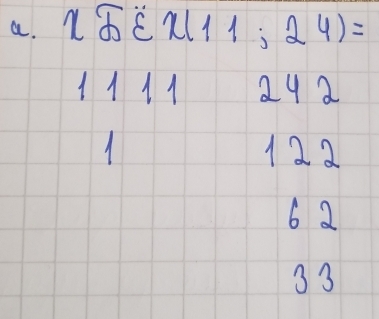 a. ХБЕХ(11 ; 24)=
11 11 24 2
1 12 2
6 2
3 3